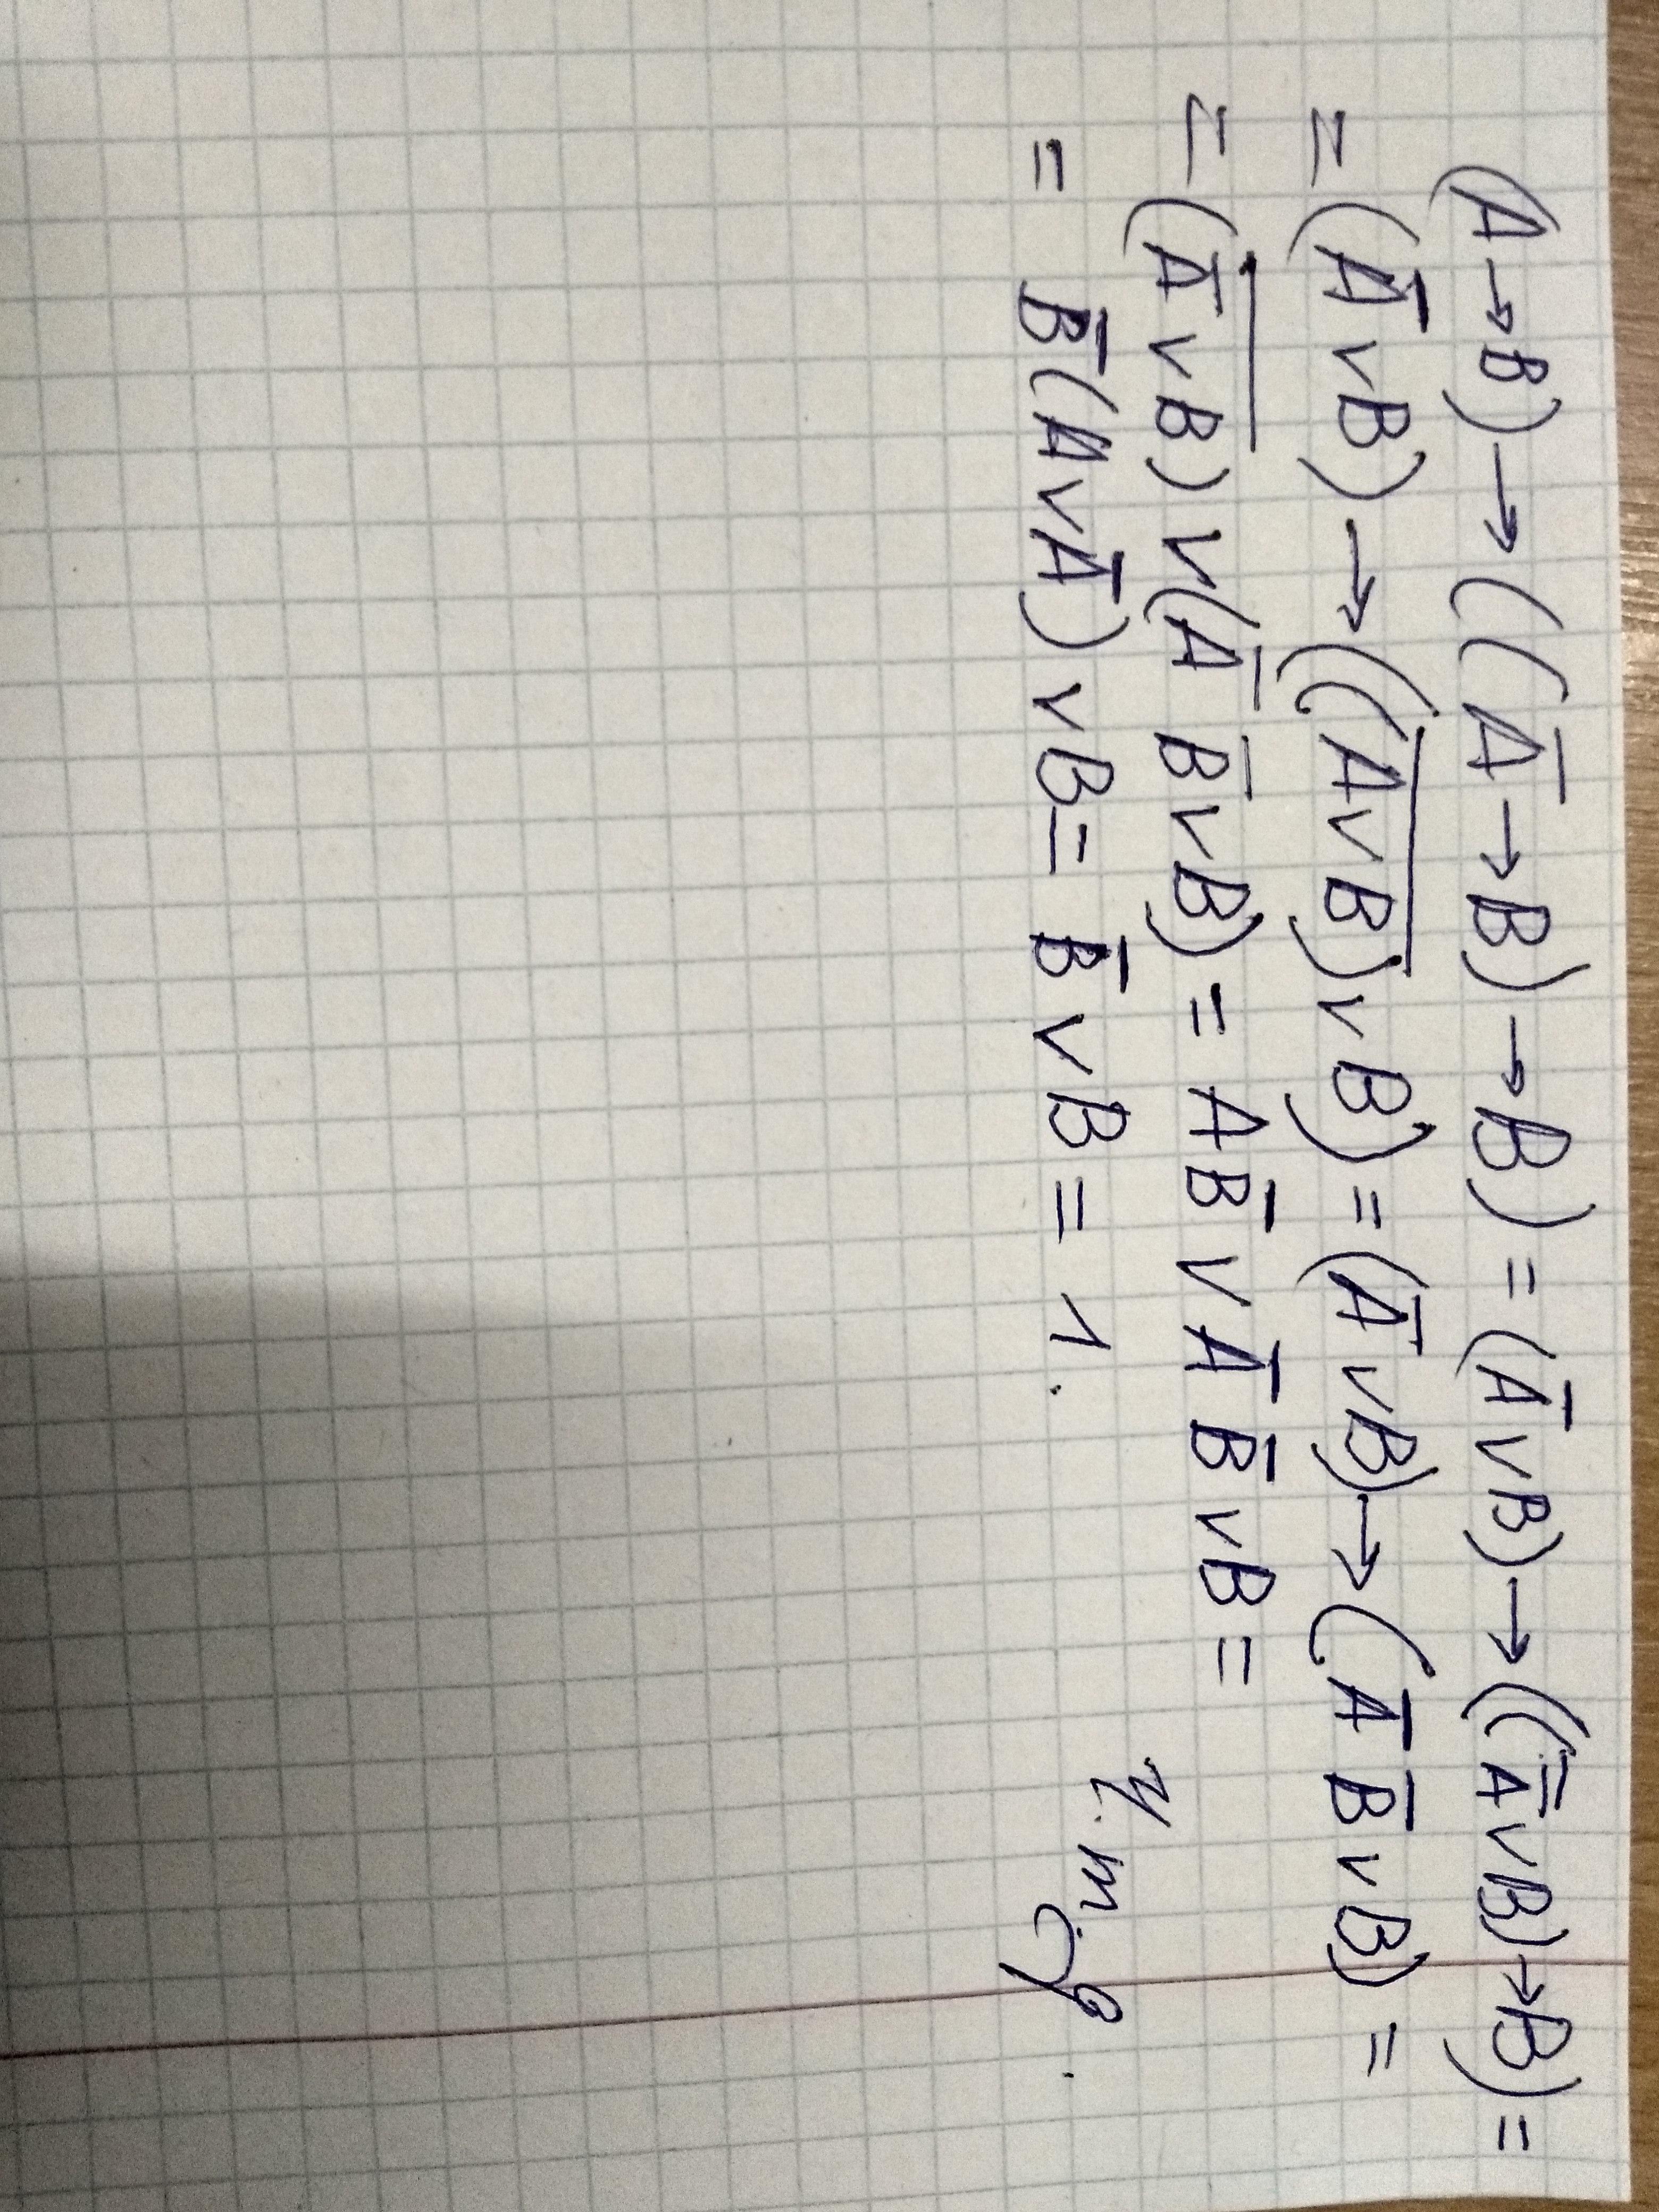 (A→B)→((A̅→B)→B) = (A̅∨B)→((A̿∨B)→B) =
= (A̅∨B)→((A̅∨̅B̅)∨B) = (A̅∨B)→(A̅ B̅∨B) =
= (A̿∨̅B̅)∨(A̅ B̅∨B) = AB̅∨A̅ B̅∨B =
= B̅(A∨A̅)∨B = B̅∨B = 1.
ч.т.д.